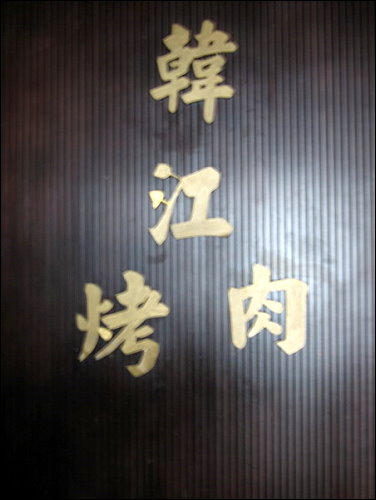 韓江
烤肉